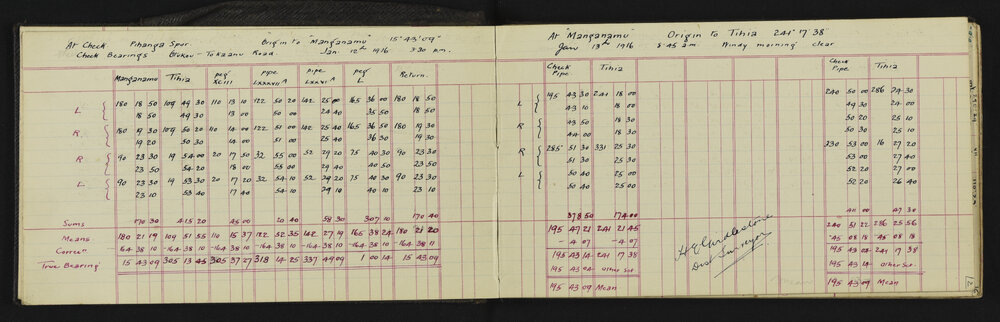 At Check Pihanga Spur Origin to "Manganamu" 15° 43' 09"
Check Bearings Otukou - Tokaanu Road. Jan. 12th 1916 3.30 p.m.
Manganamu Tihia peg XCIII pipe LXXXVII A pipe LXXVI A peg L Return.
L { 180 18 50 109 49 30 110 13 10 122 50 20 142 25 00 165 36 00 180 18 50
18 50 49 30 13 00 50 00 24 40 35 50 18 50
R { 180 19 30 109 50 20 110 14 00 122 51 00 142 25 40 165 36 50 180 19 30
19 20 50 30 14 00 51 00 25 40 36 30 19 30
R { 90 23 30 19 54 00 20 17 50 32 55 00 52 29 20 75 40 30 90 23 30
23 50 54 20 18 00 55 00 29 40 40 50 23 50
L { 90 23 30 19 53 30 20 17 20 32 54 10 52 29 20 75 40 30 90 23 30
23 10 53 40 17 40 54 10 29 10 40 10 23 10
Sums 170 30 415 20 45 00 20 40 58 30 307 10 170 40
Means 180 21 19 109 51 55 110 15 37 122 52 35 142 27 19 165 38 24 180 21 20
Correcn -164 38 10 -164 38 10 -164 38 10 -164 38 10 -164 38 10 -164 38 10 -164 38 11
True Bearing 15 43 09 305 13 45 305 37 27 318 14 25 337 49 09 1 00 14 15 43 09
At "Manganamu" Origin to Tihia 241° 17' 38"
Jan 13th 1916 8.45 am Windy morning clear
Check Pipe Tihia Check Pipe Tihia
L { 195 43 30 241 18 00 240 50 00 286 24 30
43 10 18 00 49 30 24 00
R { 43 50 18 30 50 20 25 10
44 00 18 30 50 30 25 10
R { 285 51 30 331 25 30 330 53 00 16 27 20
51 30 25 30 53 00 27 40
L { 50 40 25 00 52 20 27 00
50 40 25 00 52 20 26 40
378 50 174 00 42 00 47 30
195 47 21 241 21 45 240 31 22 286 25 56
- 4 07 - 4 07 -45 08 18 -45 08 18
195 43 14 241 17 38 195 43 04 241 17 38
195 43 04 other Set 195 43 14 other Set
195 43 09 Mean 195 43 09 Mean
H E Girdlestone
Dist Surveyor